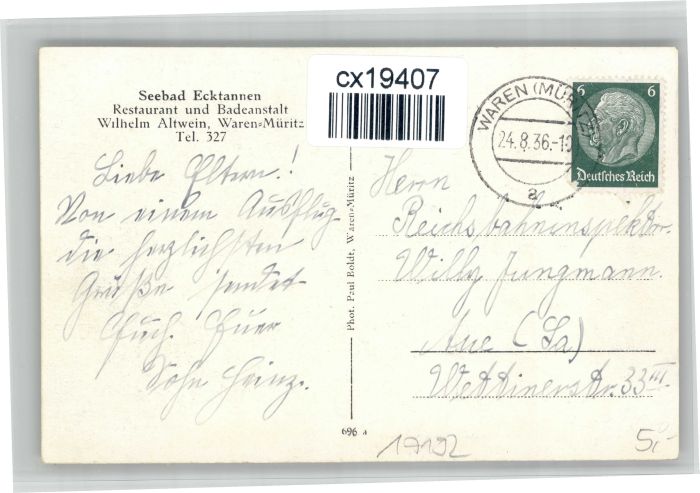 Seebad Ecktannen
Restaurant und Badeanstalt
Wilhelm Altwein, Waren-Müritz
Tel. 327
cx19407
WAREN (MÜRITZ)
24.8.36.-10
a
6 6
Deutsches Reich
Liebe Eltern!
Von einem Ausflug
die herzlichsten
Grüße sendet
Euch Euer
Sohn Heinz.
Phot. Paul Boldt, Waren-Müritz
696 a
Herrn
Reichsbahninspektor
Willy Jungmann.
Aue (Sa)
Wettinerstr. 33 III
17192
5,-